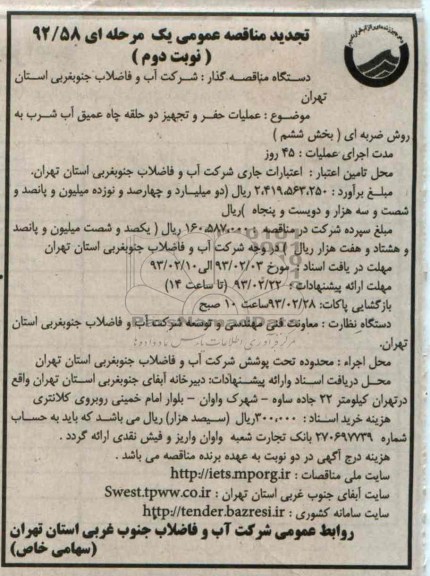 تجدید مناقصه عمومی یک مرحله ای ۹۲/۵۸
( نوبت دوم )
دستگاه مناقصه گذار : شرکت آب و فاضلاب جنوبغربی استان
تهران
موضوع : عملیات حفر و تجهیز دو حلقه چاه عمیق آب شرب به
روش ضربه ای ( بخش ششم )
مدت اجرای عملیات : ۴۵ روز
محل تامین اعتبار : اعتبارات جاری شرکت آب و فاضلاب جنوبغربی استان تهران.
مبلغ برآورد : ۲،۴۱۹،۵۶۳،۲۵۰ ریال (دو میلیارد و چهارصد و نوزده میلیون و پانصد و
شصت و سه هزار و دویست و پنجاه )ریال
مبلغ سپرده شرکت در مناقصه : ۱۶۰،۵۸۷،۰۰۰ ریال ( یکصد و شصت میلیون و پانصد
و هشتاد و هفت هزار ریال ) در وجه شرکت آب و فاضلاب جنوبغربی استان تهران
مهلت در یافت اسناد : مورخ ۹۳/۰۲/۰۳ الی ۹۳/۰۲/۱۰
مهلت ارائه پیشنهادات : ۹۳/۰۲/۲۲ (تا ساعت ۱۴)
بازگشایی پاکات: ۹۳/۰۲/۲۸ساعت ۱۰ صبح
دستگاه نظارت : معاونت فنی مهندسی و توسعه شرکت آب و فاضلاب جنوبغربی استان
تهران.
محل اجراء : محدوده تحت پوشش شرکت آب و فاضلاب جنوبغربی استان تهران
محل دریافت اسناد وارائه پیشنهادات: دبیرخانه آبفای جنوبغربی استان تهران واقع
درتهران کیلومتر ۲۲ جاده ساوه – شهرک واوان – بلوار امام خمینی روبروی کلانتری
هزینه خرید اسناد : ۳۰۰،۰۰۰ریال (سیصد هزار) ریال می باشد که باید به حساب
شماره ۲۷۰۶۹۷۷۳۹ بانک تجارت شعبه واوان واریز و فیش نقدی ارائه گردد .
هزینه درج آگهی در دو نوبت به عهده برنده مناقصه می باشد .
سایت ملی مناقصات : http://iets.mporg.ir
سایت آبفای جنوب غربی استان تهران : Swest.tpww.co.ir
سایت سامانه کشوری : http://tender.bazresi.ir
روابط عمومی شرکت آب و فاضلاب جنوب غربی استان تهران
(سهامی خاص)